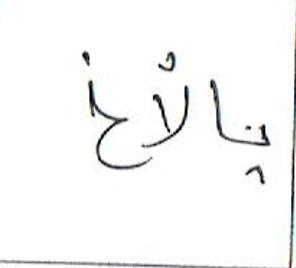 پالأخ